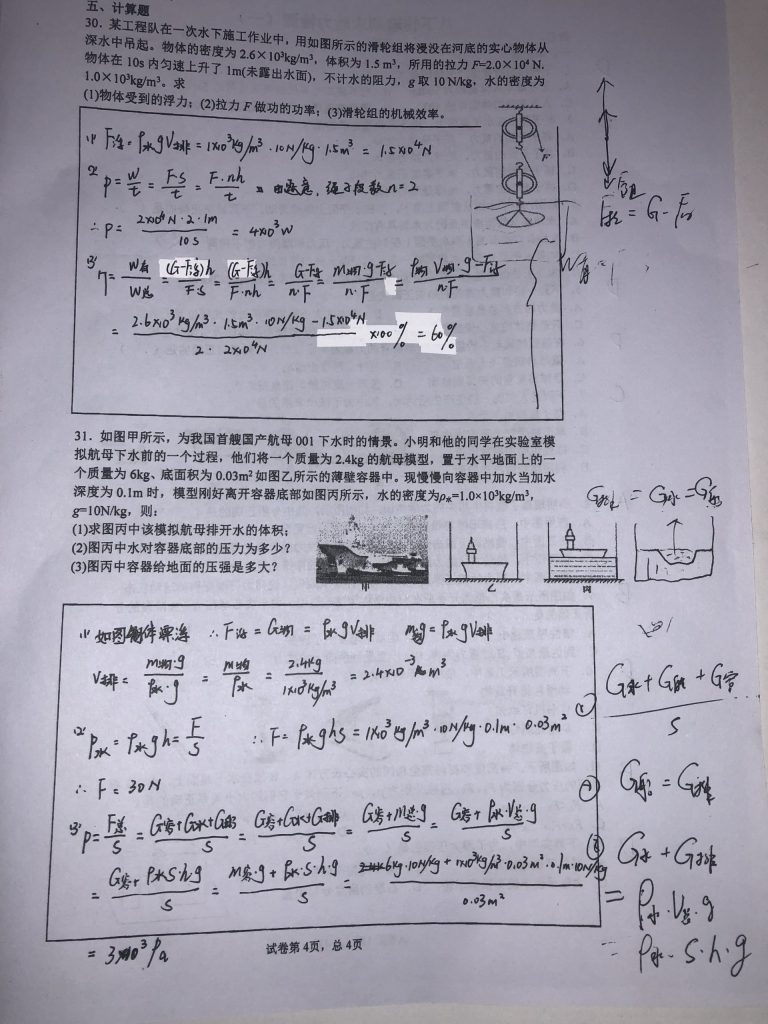 五、计算题
30．某工程队在一次水下施工作业中，用如图所示的滑轮组将浸没在河底的实心物体从
深水中吊起。物体的密度为 2.6×10³kg/m³，体积为 1.5 m³，所用的拉力 F=2.0×10⁴ N.
物体在 10s 内匀速上升了 1m(未露出水面)，不计水的阻力，g 取 10 N/kg，水的密度为
1.0×10³kg/m³。求
(1)物体受到的浮力；(2)拉力 F 做功的功率；(3)滑轮组的机械效率。
(1) F浮=ρ水gV排=1×10³kg/m³·10N/kg·1.5m³ = 1.5×10⁴N
(2) P=W/t=F·S/t=F·nh/t 由题意，绳子段数n=2
∴P= 2×10⁴N·2·1m/10s = 4×10³W
(3) η=W有/W总=(G-F浮)h/F·S=(G-F浮)h/F·nh=G-F浮/n·F=m物·g-F浮/n·F=ρ物V物·g-F浮/n·F
= 2.6×10³kg/m³·1.5m³·10N/kg-1.5×10⁴N/2·2×10⁴N ×100% =60%
F
F拉
F拉=G-F浮
W有=(
31．如图甲所示，为我国首艘国产航母 001 下水时的情景。小明和他的同学在实验室模
拟航母下水前的一个过程，他们将一个质量为 2.4kg 的航母模型，置于水平地面上的一
个质量为 6kg、底面积为 0.03m² 如图乙所示的薄壁容器中。现慢慢向容器中加水当加水
深度为 0.1m 时，模型刚好离开容器底部如图丙所示，水的密度为ρ水=1.0×10³kg/m³，
g=10N/kg，则：
(1)求图丙中该模拟航母排开水的体积；
(2)图丙中水对容器底部的压力为多少？
(3)图丙中容器给地面的压强是多大？
甲
乙
丙
(1) 如图物体漂浮 ∴F浮=G物=ρ水gV排 m物g=ρ水gV排
V排=m物·g/ρ水·g = m物/ρ水 = 2.4kg/1×10³kg/m³ =2.4×10⁻³m³
(2) P水=ρ水gh=F/S ∴F=ρ水ghS=1×10³kg/m³·10N/kg·0.1m·0.03m²
∴F=30N
(3) P=F总/S=G容+G水+G船/S=G容+G水+G排/S=G容+m总·g/S=G容+ρ水·V总·g/S
=G容+ρ水S·h·g/S=m容·g+ρ水·S·h·g/S=6kg·10N/kg+1×10³kg/m³·0.03m²·0.1m·10N/kg/0.03m²
=3×10³Pa
(3)
① G水+G船+G容/S
② G船=G排
③ G水+G排
=ρ水·V总·g
=ρ水·S·h·g
试卷第 4页，总 4页